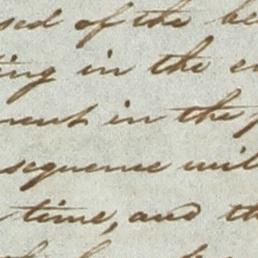 sed of the be
ing in the e
ment in the p
sequence will
time, and th